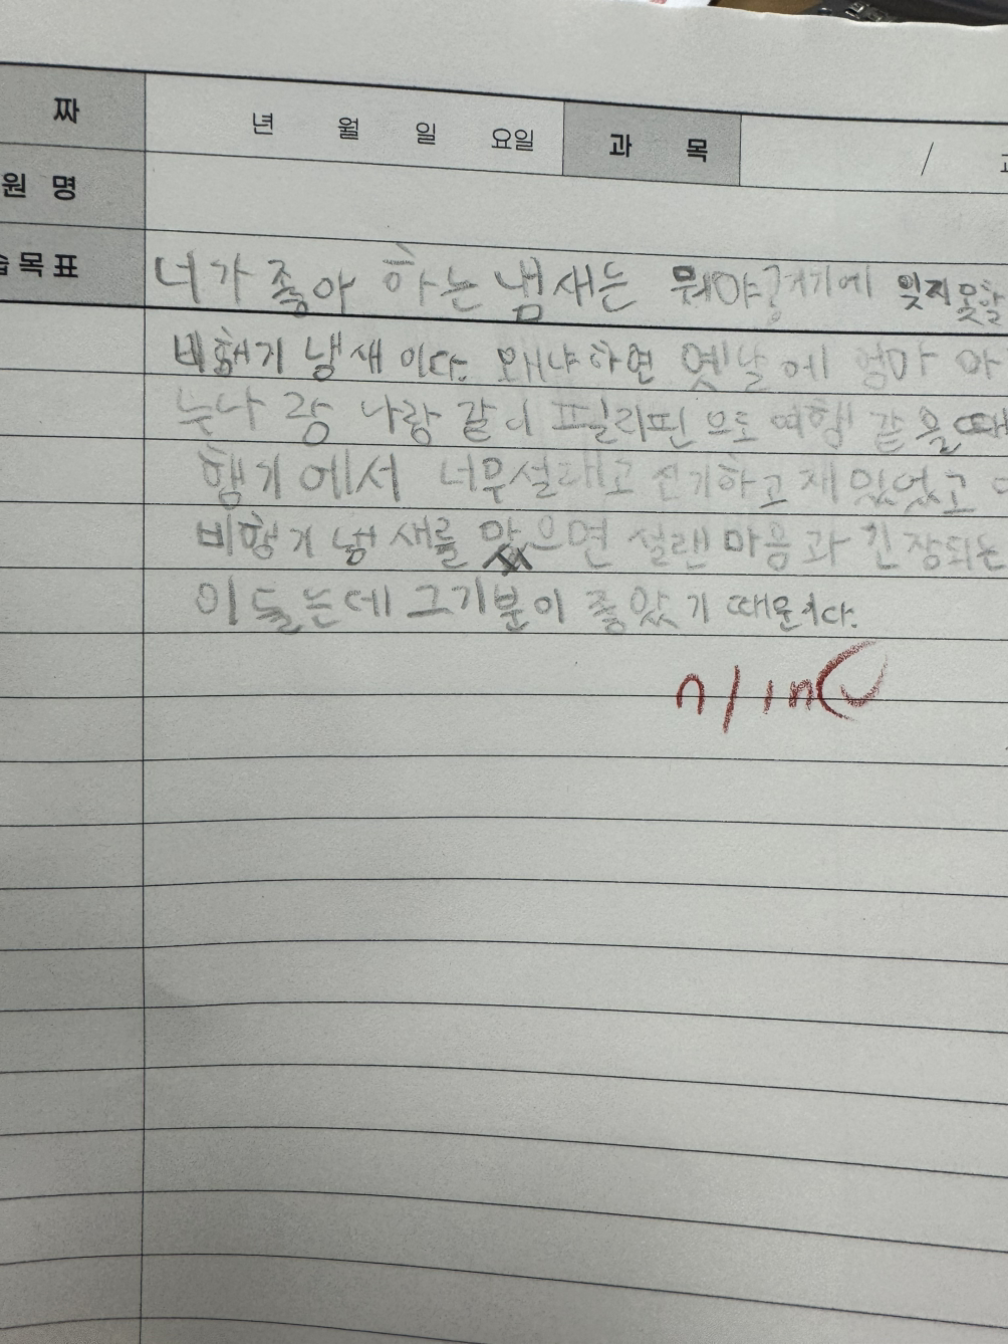 짜 년 월 일 요일 과 목 /
원 명
습목표 너가 좋아 하는 냄새는 뭐야? 거기에 잊지 못할
비행기 냄새 이다. 왜냐하면 옛날에 엄마 아
누나 랑 나랑 같이 필리핀 으로 여행 같을때
행기 에서 너무설래고 신기하고 재밌었고
비행기 냄새를 맞으면 설랜 마음과 긴장되는
이 들는데 그기분이 좋았기 때문이다.